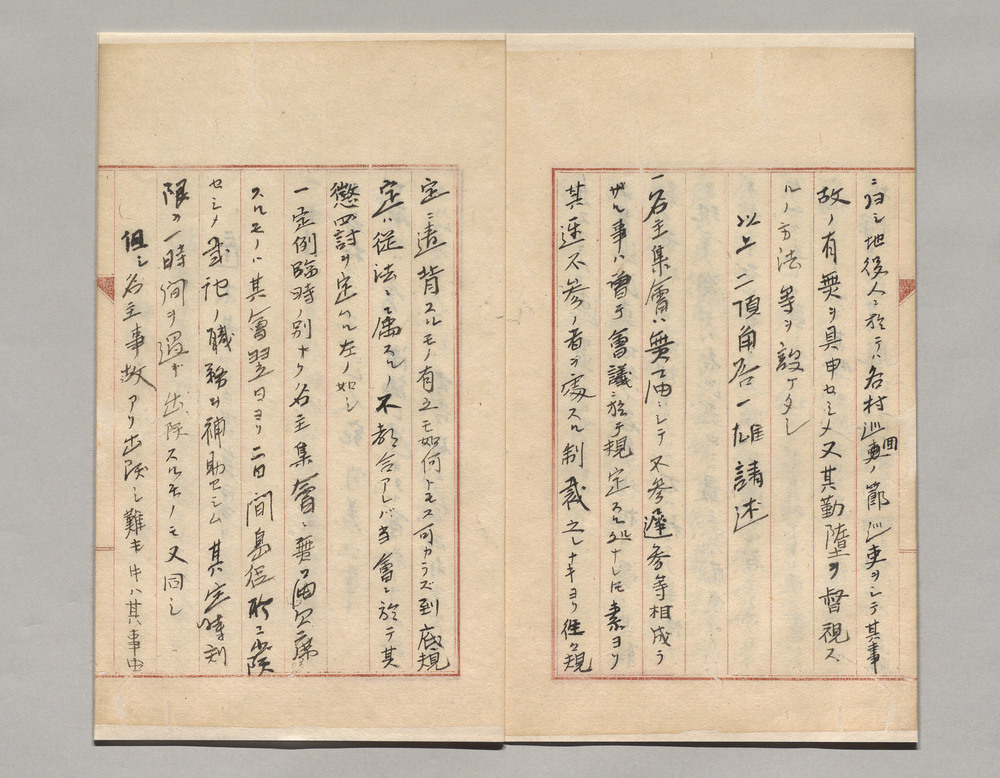 ニ歸シ地役人ニ於テハ各村巡回ノ節巡吏ヲシテ其事
故ノ有無ヲ具申セシメ又其勤惰ヲ督視ス
ルノ方法等ヲ設ケタシ
以上二項角谷一雄請述
一名主集會ハ無届ニシテ不参遲参等相成ラ
ザル事ハ曽テ會議ニ於テ規定スル処ナレ𪜈素ヨリ
其遲不参ノ者ヲ處スル制裁之レナキヨリ往々規
定ニ違背スルモノ有之モ如何トモス可カラズ到底規
定ハ従法ニ属スルノ不都合アレバ当會ニ於テ其
懲罰ヲ定ムル左ノ如シ
一定例臨時ノ別ナク名主集會ニ無届欠席
スルモノハ其會翌日ヨリ二日間島役所ニ出頭
セシメ書記ノ職務ヲ補助セシム其定時刻
限ヲ一時間ヲ過ギ出頭スルモノモ又同シ
但シ名主事故アリ出頭シ難キ片ハ其事由